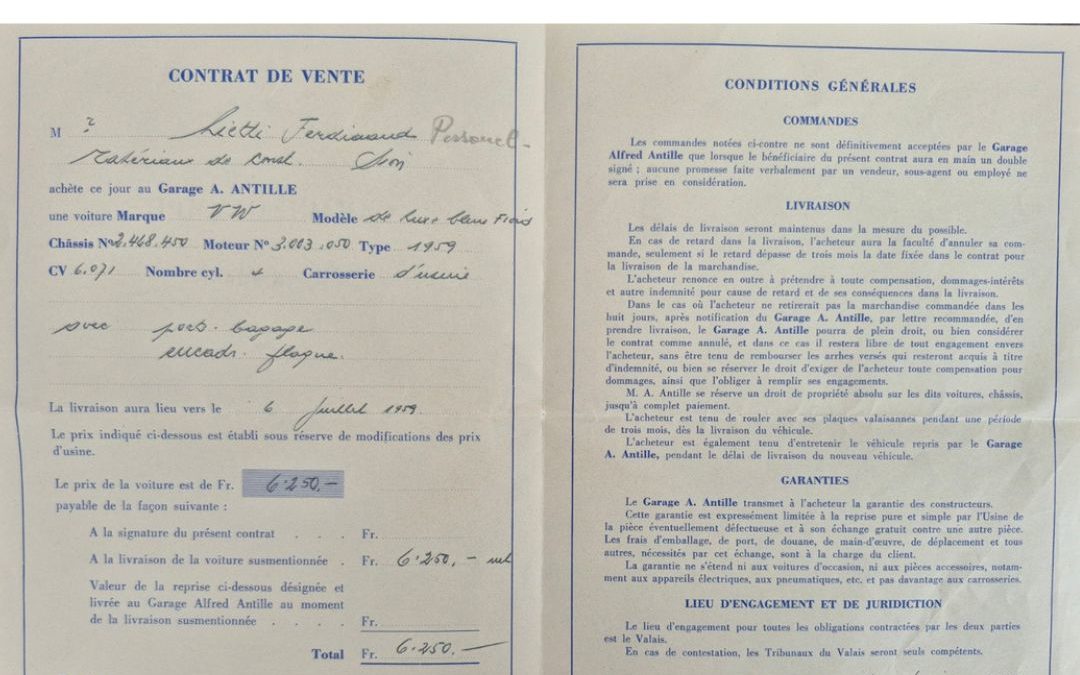 CONTRAT DE VENTE
M ? Lietti Ferdinand Personnel-
Matériaux de const. Sion
achète ce jour au Garage A. ANTILLE
une voiture Marque VW Modèle de luxe bleu
Châssis Nº 2.468.450 Moteur Nº 3.003.050 Type 1959
CV 6.071 Nombre cyl. 4 Carrosserie d'usine
avec port-bagage
encadr. plaque.
La livraison aura lieu vers le 6 Juillet 1959.
Le prix indiqué ci-dessous est établi sous réserve de modifications des prix
d'usine.
Le prix de la voiture est de Fr. 6.250.—
payable de la façon suivante :
A la signature du présent contrat . . . Fr.
A la livraison de la voiture susmentionnée . Fr. 6.250.—
Valeur de la reprise ci-dessous désignée et
livrée au Garage Alfred Antille au moment
de la livraison susmentionnée . . . . Fr.
Total Fr. 6.250.—
CONDITIONS GÉNÉRALES
COMMANDES
Les commandes notées ci-contre ne sont définitivement acceptées par le Garage
Alfred Antille que lorsque le bénéficiaire du présent contrat aura en main un double
signé ; aucune promesse faite verbalement par un vendeur, sous-agent ou employé ne
sera prise en considération.
LIVRAISON
Les délais de livraison seront maintenus dans la mesure du possible.
En cas de retard dans la livraison, l'acheteur aura la faculté d'annuler sa com-
mande, seulement si le retard dépasse de trois mois la date fixée dans le contrat pour
la livraison de la marchandise.
L'acheteur renonce en outre à prétendre à toute compensation, dommages-intérêts
et autre indemnité pour cause de retard et de ses conséquences dans la livraison.
Dans le cas où l'acheteur ne retirerait pas la marchandise commandée dans les
huit jours, après notification du Garage A. Antille, par lettre recommandée, d'en
prendre livraison, le Garage A. Antille pourra de plein droit, ou bien considérer
le contrat comme annulé, et dans ce cas il restera libre de tout engagement envers
l'acheteur, sans être tenu de rembourser les arrhes versés qui resteront acquis à titre
d'indemnité, ou bien se réserver le droit d'exiger de l'acheteur toute compensation pour
dommages, ainsi que l'obliger à remplir ses engagements.
M. A. Antille se réserve un droit de propriété absolu sur les dits voitures, châssis,
jusqu'à complet paiement.
L'acheteur est tenu de rouler avec ses plaques valaisannes pendant une période
de trois mois, dès la livraison du véhicule.
L'acheteur est également tenu d'entretenir le véhicule repris par le Garage
A. Antille, pendant le délai de livraison du nouveau véhicule.
GARANTIES
Le Garage A. Antille transmet à l'acheteur la garantie des constructeurs.
Cette garantie est expressément limitée à la reprise pure et simple par l'Usine de
la pièce éventuellement défectueuse et à son échange gratuit contre une autre pièce.
Les frais d'emballage, de port, de douane, de main-d'œuvre, de déplacement et tous
autres, nécessités par cet échange, sont à la charge du client.
La garantie ne s'étend ni aux voitures d'occasion, ni aux pièces accessoires, notam-
ment aux appareils électriques, aux pneumatiques, etc. et pas davantage aux carrosseries.
LIEU D'ENGAGEMENT ET DE JURIDICTION
Le lieu d'engagement pour toutes les obligations contractées par les deux parties
est le Valais.
En cas de contestation, les Tribunaux du Valais seront seuls compétents.